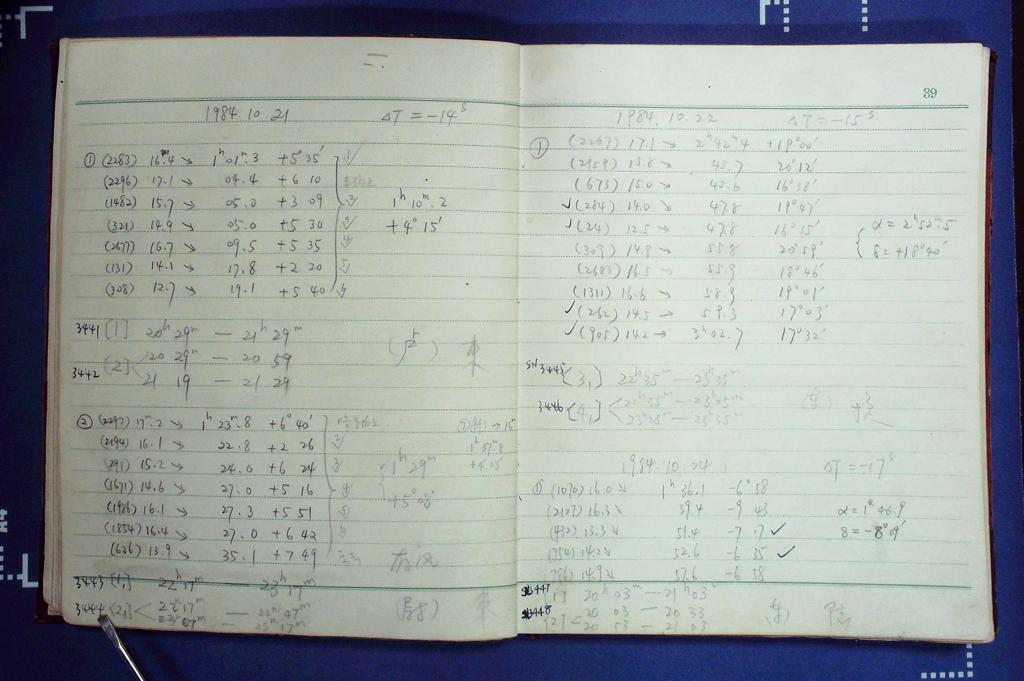 1984.10.21 ΔT = -14ˢ
① (2283) 16ᵐ.4 → 1ʰ 01ᵐ.3 +5° 35′
(2296) 17.1 → 04.4 +6 10
(1482) 15.7 → 05.0 +3 09 1ʰ 10ᵐ.2
(321) 14.9 → 05.0 +5 30 +4° 15′
(2677) 16.7 → 09.5 +5 35
(131) 14.1 → 17.8 +2 20
(308) 12.7 → 19.1 +5 40
3441 [1] 20ʰ 29ᵐ — 21ʰ 29ᵐ
3442 [2] < 20 29ᵐ — 20 59
21 19 — 21 29
② (2297) 17ᵐ.2 → 1ʰ 23ᵐ.8 +6° 40′
(2194) 16.1 → 22.8 +2 26
(291) 15.2 → 24.0 +6 24 1ʰ 29ᵐ
(1671) 14.6 → 27.0 +5 16 +5° 08′
(1986) 16.1 → 27.3 +5 51
(1854) 16.4 → 27.0 +6 42
(636) 13.9 → 35.1 +7 49
3443 [1,] 22ʰ 17ᵐ — 23ʰ 17ᵐ
3444 [2,] < 22ʰ 17ᵐ — 22ʰ 47ᵐ
23ʰ 07ᵐ — 23ʰ 17ᵐ
39
1984.10.22 ΔT = -15ˢ
① (2267) 17.1 → 2ʰ 42ᵐ.4 +19° 00′
(2159) 15.8 → 45.7 20° 12′
(673) 15.0 → 45.6 16° 38′
✓ (284) 14.0 → 47.8 19° 47′
✓ (24) 12.5 → 47.8 16° 15′ α = 2ʰ 52ᵐ.5
(309) 14.9 → 55.8 20° 59′ δ = +18° 40′
(2683) 16.5 → 55.9 18° 46′
(1311) 16.6 → 58.9 19° 01′
✓ (262) 14.5 → 59.3 17° 03′
✓ (905) 14.2 → 3ʰ 02.7 17° 32′
SN 3445 [3,] 22ʰ 35ᵐ — 23ʰ 35ᵐ
3446 [4,] < 22ʰ 35ᵐ — 23ʰ 05ᵐ
23ʰ 25ᵐ — 23ʰ 35ᵐ
1984.10.24 ΔT = -17ˢ
① (1070) 16.0 ↘ 1ʰ 36.1 -6° 58
(2127) 16.3 ↘ 39.4 -9 43 α = 1ʰ 46.9
(432) 13.3 ↘ 51.4 -7 .7 ✓ δ = -8° 09′
(754) 14.2 ↘ 52.6 -6 35 ✓
(786) 14.9 ↘ 57.6 -6 38
3447 [1] 20ʰ 03ᵐ — 21ʰ 03ᵐ
3448 [2] < 20 03 — 20 33
20 53 — 21 03